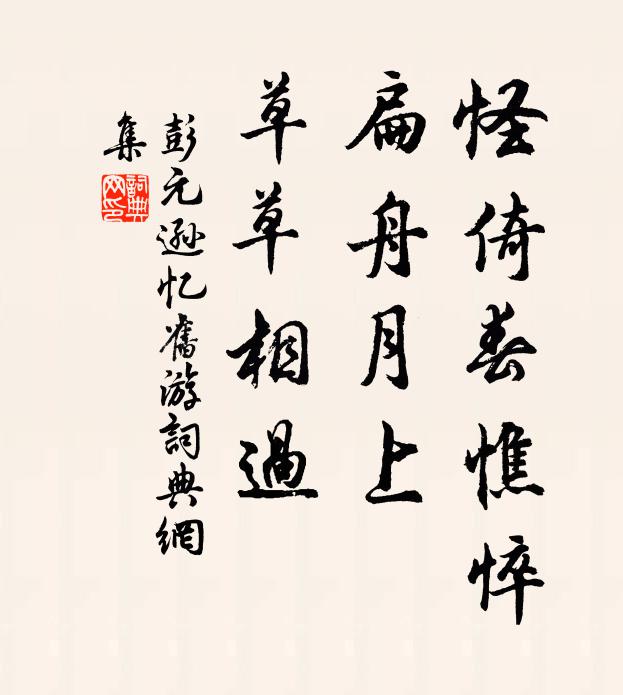 怪倚春憔悴
扁舟月上
草草相過
彭元遜忆舊游詞典網
集
詞典网印